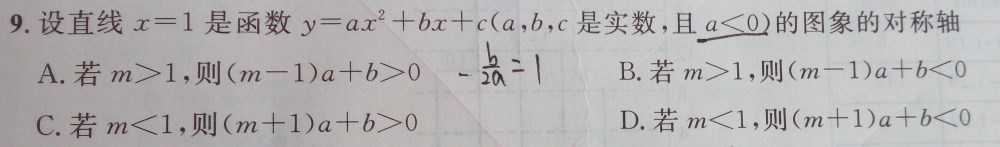 9. 设直线 x=1 是函数 y=ax²+bx+c(a,b,c 是实数,且 a<0)的图象的对称轴
A. 若 m>1,则(m-1)a+b>0 -b/2a=1 B. 若 m>1,则(m-1)a+b<0
C. 若 m<1,则(m+1)a+b>0 D. 若 m<1,则(m+1)a+b<0